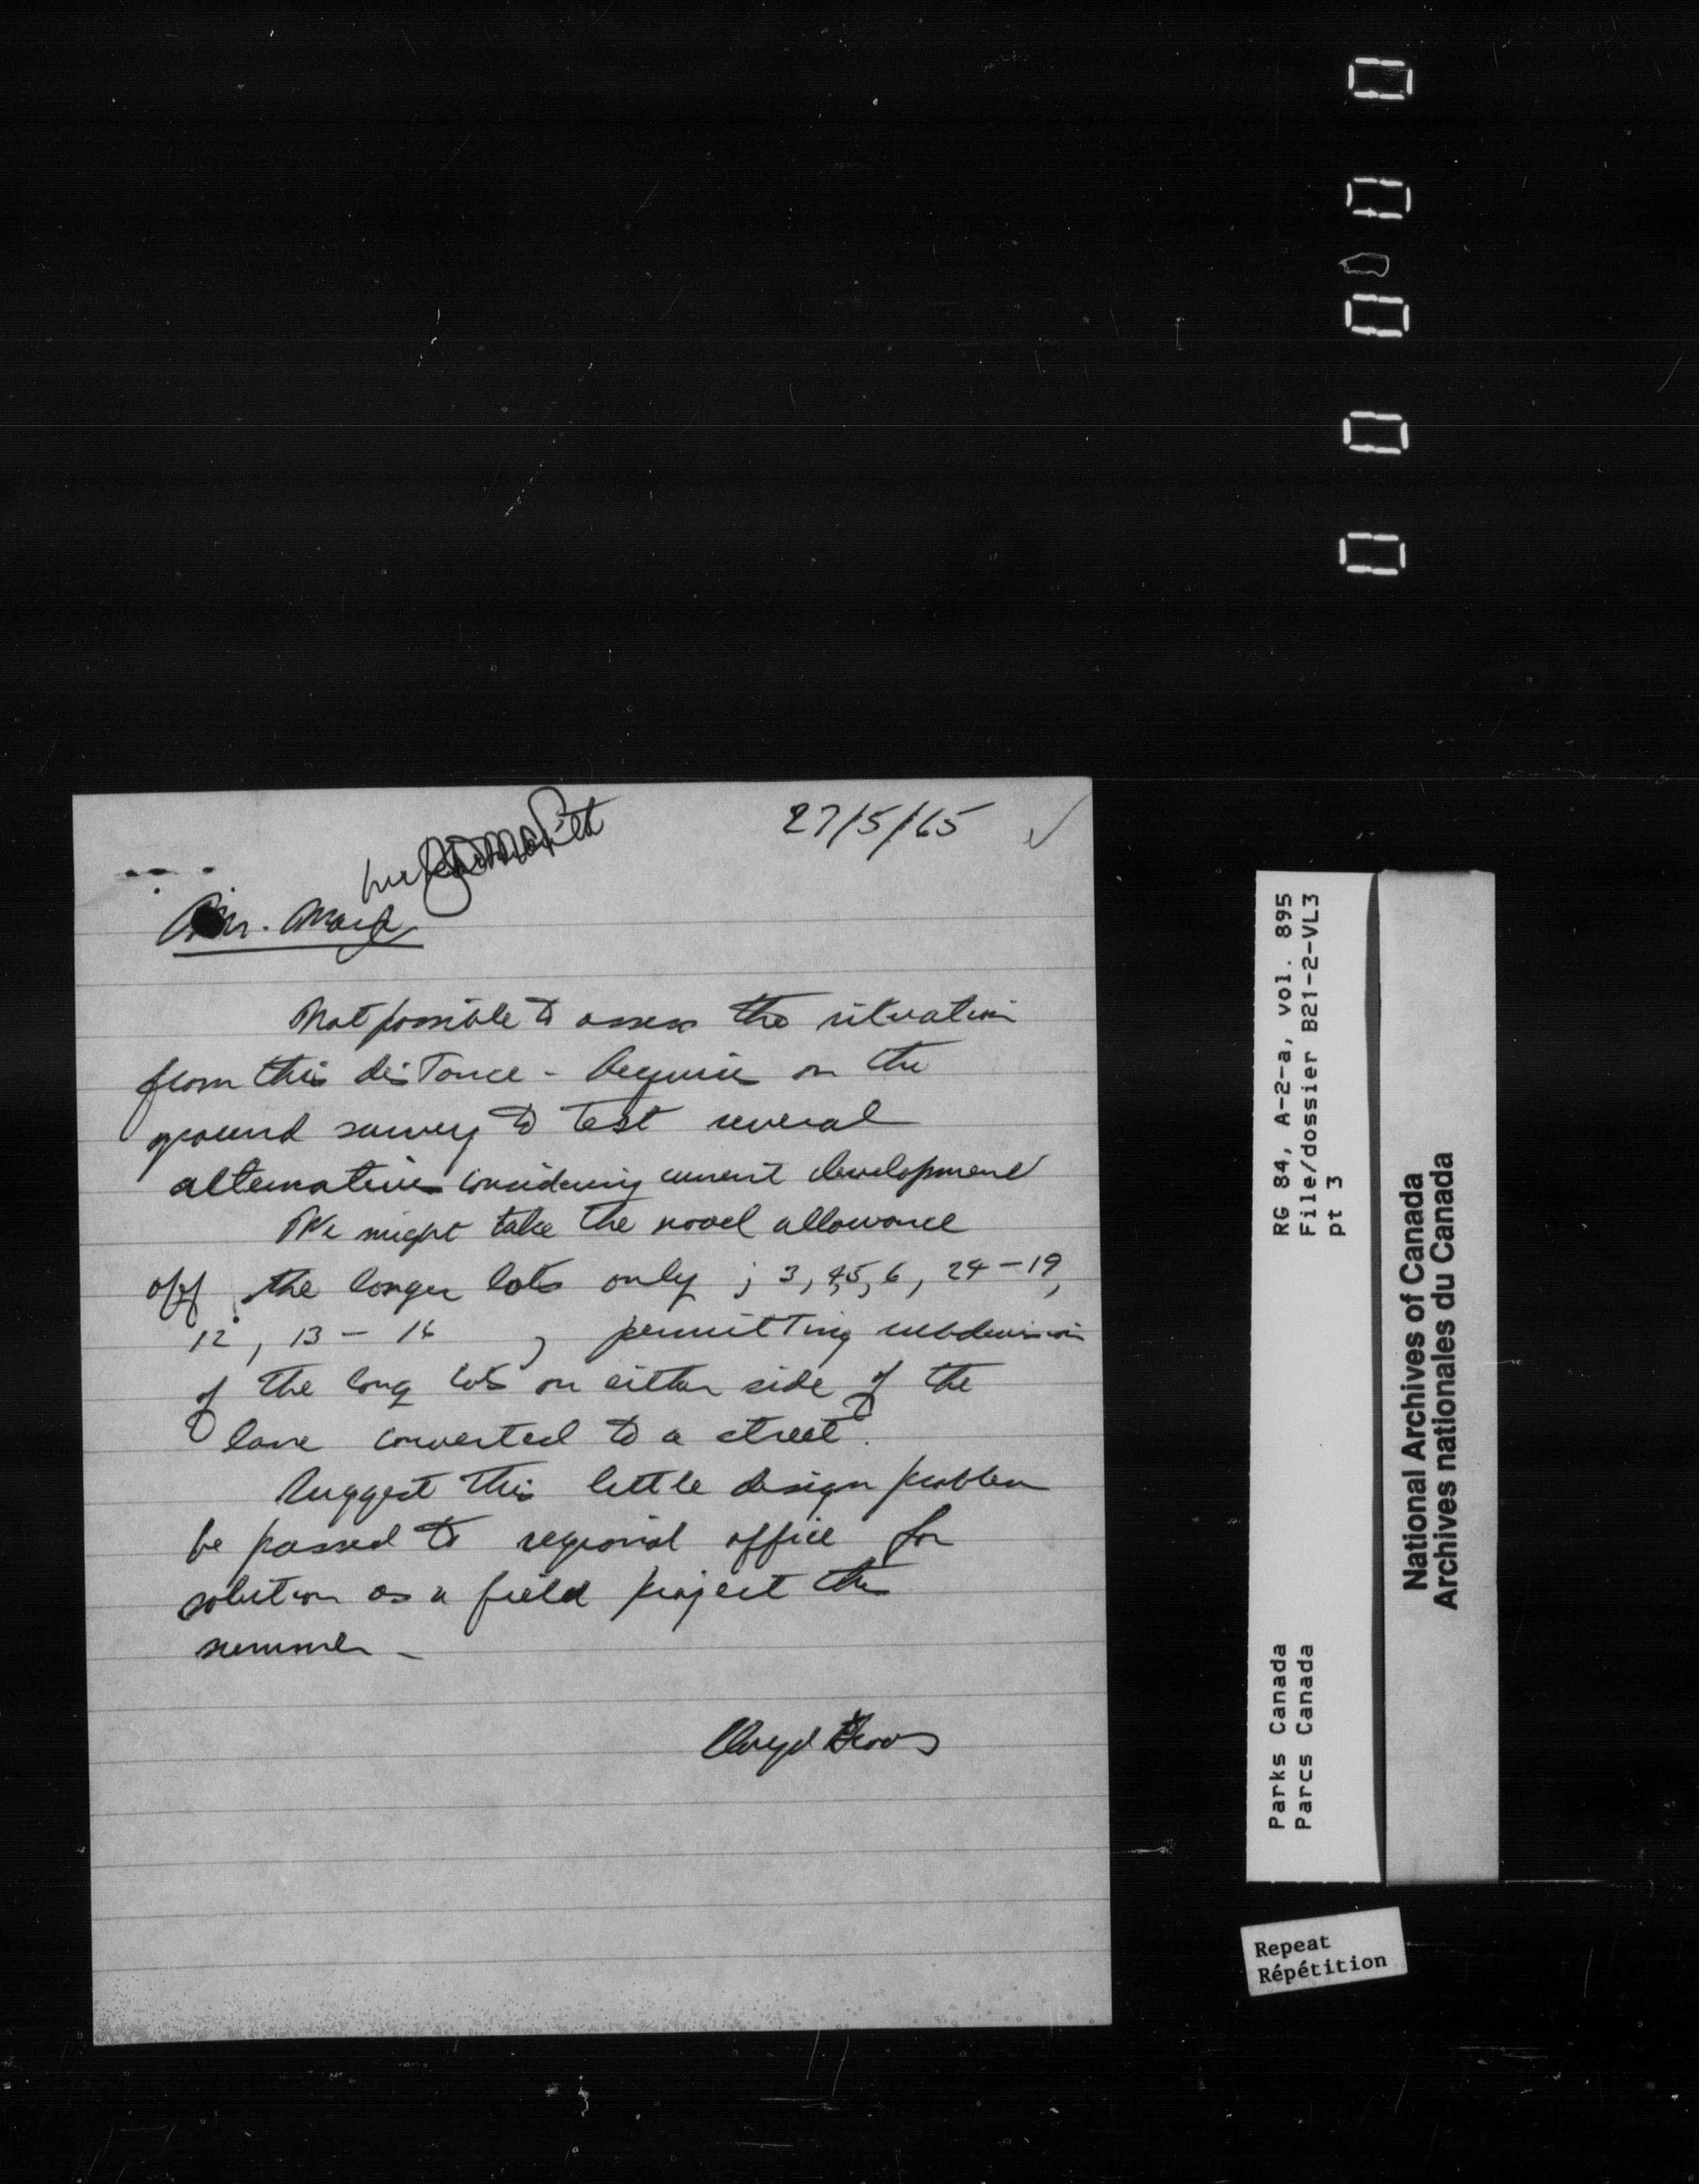 27/5/65
Mr.
Not possible to assess the situation
from this distance - Require on the
ground survey to test several
alternatives considering current development
We might take the road allowance
off the longer lots only ; 3, 4, 5, 6, 24-19,
12, 13 - 16 , permitting subdivision
of the long lots on either side of the
lane converted to a street.
Suggest this little design problem
be passed to regional office for
solution as a field project this
summer -
Lloyd Brooks
RG 84, A-2-a, vol. 895
File/dossier B21-2-VL3
pt 3
Parks Canada
Parcs Canada
National Archives of Canada
Archives nationales du Canada
Repeat
Répétition